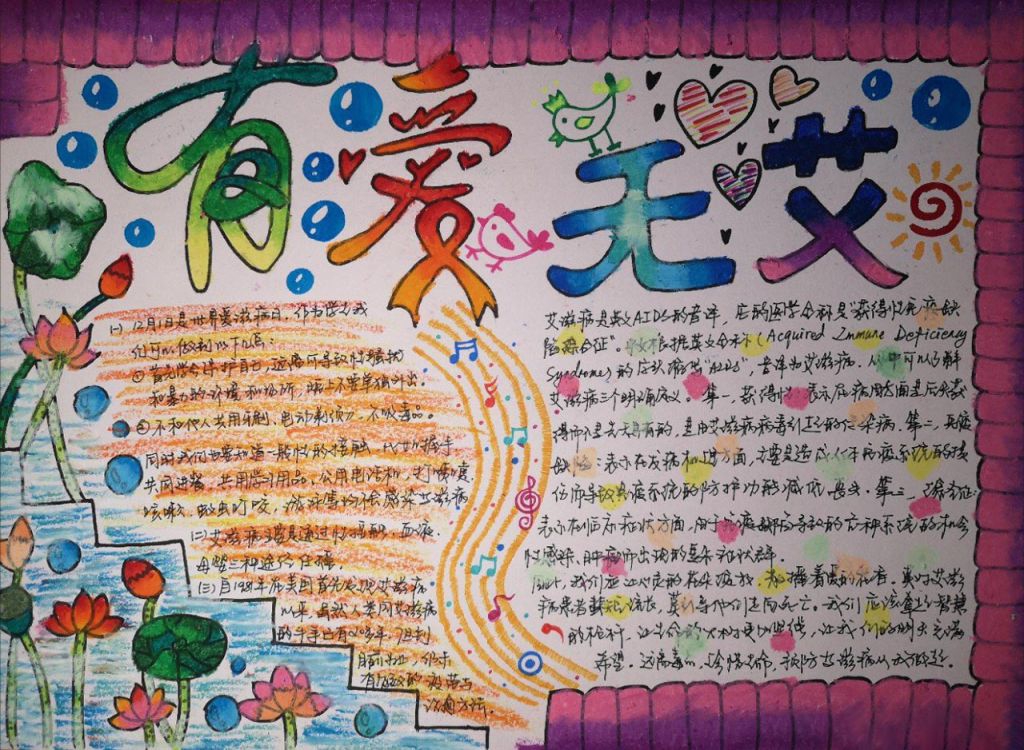 有爱无艾
(一) 12月1日是世界爱滋病日，作为学生我
们可以做到以下几点：
①首先学会保护自己，远离可导致性接触
和暴力的环境和场所，晚上不要单独外出。
②不和他人共用牙刷、电动剃须刀，不吸毒。
同时我们也要知道一般性的接触，比如握手
共同进餐，共用学习用品，公用电话机，打喷嚏
咳嗽、蚊虫叮咬，游泳等均不感染艾滋病
(二)艾滋病主要是通过性接触、血液、
母婴三种途径传播。
(三)自1981年在美国首先发现艾滋病
以来，虽然人类同艾滋病
的斗争已有20多年，但到
目前为止，仍未
有有效的疫苗与
治愈方法。
艾滋病是英文AIDS的音译，它的医学全称是"获得性免疫缺
陷综合征"，根据英文全称(Acquired Immune Deficiency
Syndrome)的 "AIDS"，音译为艾滋病。从中可以了解
艾滋病三个明确定义：第一，获得性：表示在病因方面是后天获
得而不是先天具有的，是由艾滋病病毒引起的传染病。第二，免疫
缺陷：表示在发病机理方面，主要是造成人体免疫系统的损
伤而导致免疫系统的防护功能减低、丧失。第三，综合征：
表示在临床症状方面，由于免疫缺陷导致的各种系统的机会
性感染、肿瘤而出现的复杂症状群。
因此，我们应以爱的 播着爱的花香。真的艾滋
病患者 他们走向死亡。我们应该 智慧
的 ，让生命的 ，让我们的明天充满
希望。远离毒品，珍惜生命，预防艾滋病从我做起。